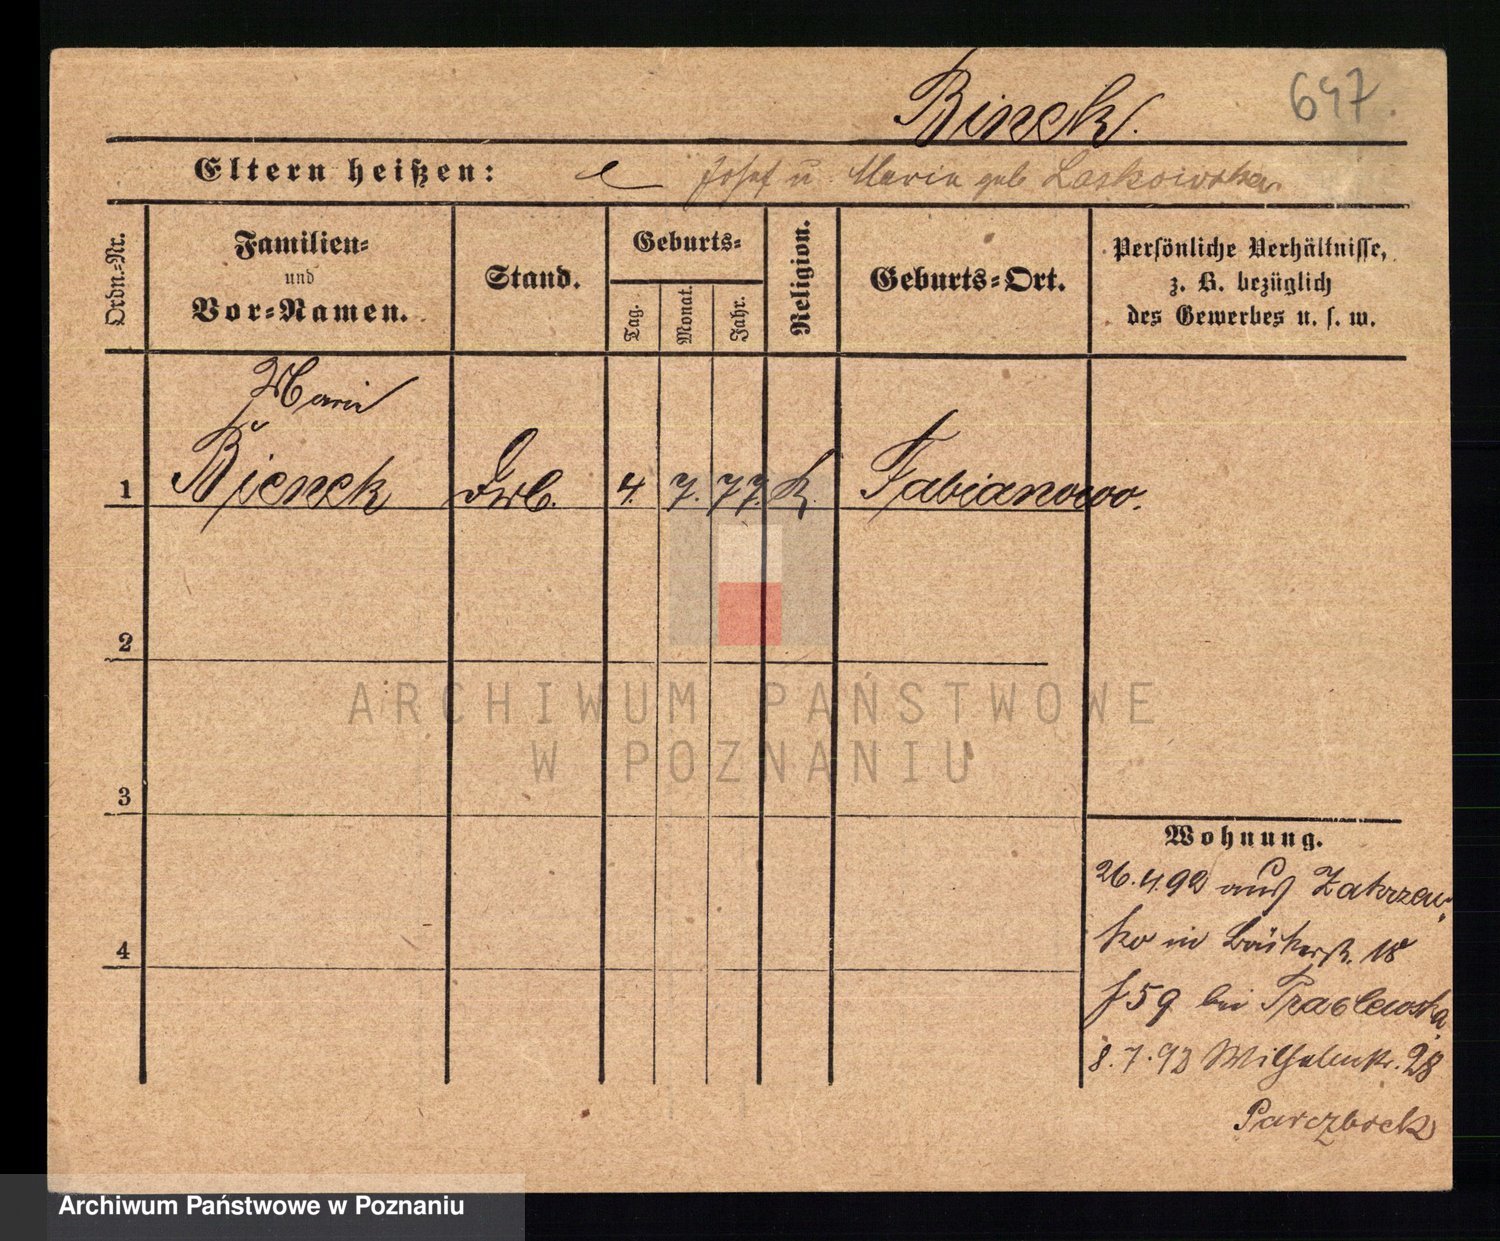 Binek.
647.
Eltern heißen: Josef u. Maria geb Laskowska
Ordn.-Nr.
Familien-
und
Vor-Namen.
Stand.
Geburts-
Tag.
Monat.
Jahr.
Religion.
Geburts-Ort.
Persönliche Verhältnisse,
z. B. bezüglich
des Gewerbes u. s. w.
Maria
1 Bienek 4. 7. 77. K. Fabianowo.
2
3
4
Wohnung.
26.4.92 aus Zakrzew-
ko in Bäckerstr. 18
bei
8.7.92 Wilhelmstr. 28
Parczbock
ARCHIWUM PAŃSTWOWE
W POZNANIU
Archiwum Państwowe w Poznaniu